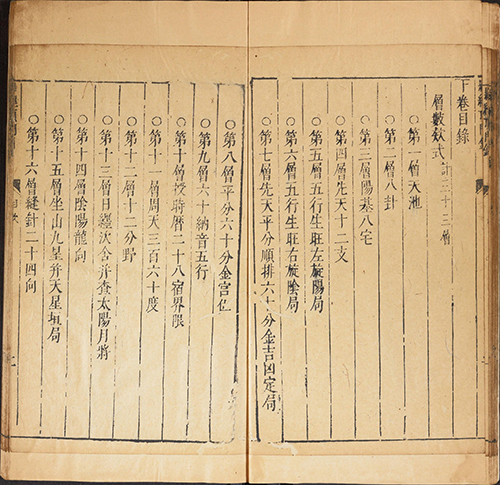 下卷目錄
層數欵式計三十三層
○第一層天池
○第二層八卦
○第三層陽基八宅
○第四層先天十二支
○第五層五行生旺左旋陽局
○第六層五行生旺右旋陰局
○第七層先天平分順排六十分金吉凶定局
○第八層平分六十分金宫位
○第九層六十納音五行
○第十層授時曆二十八宿界限
○第十一層周天三百六十度
○第十二層十二分野
○第十三層日纏次舍并查太陽月將
○第十四層陰陽龍向
○第十五層坐山九星并天星垣局
○第十六層縫針二十四向
目錄